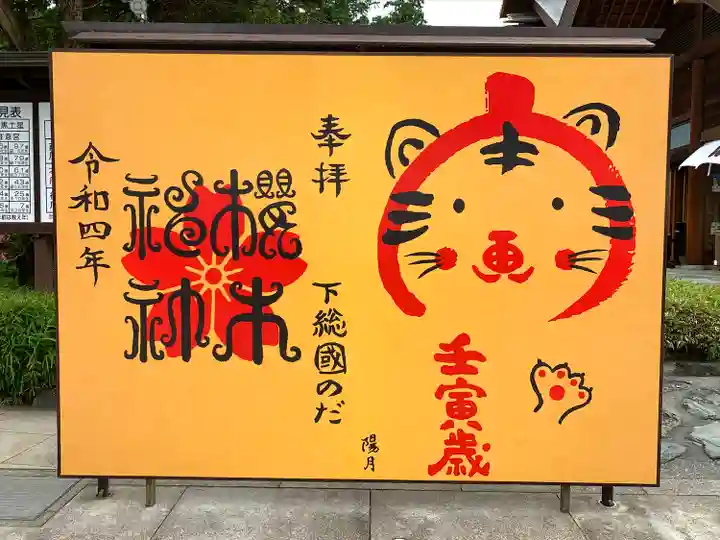 壬寅歳
奉拝
下総國のだ
陽月
櫻木
神社
令和四年
見表